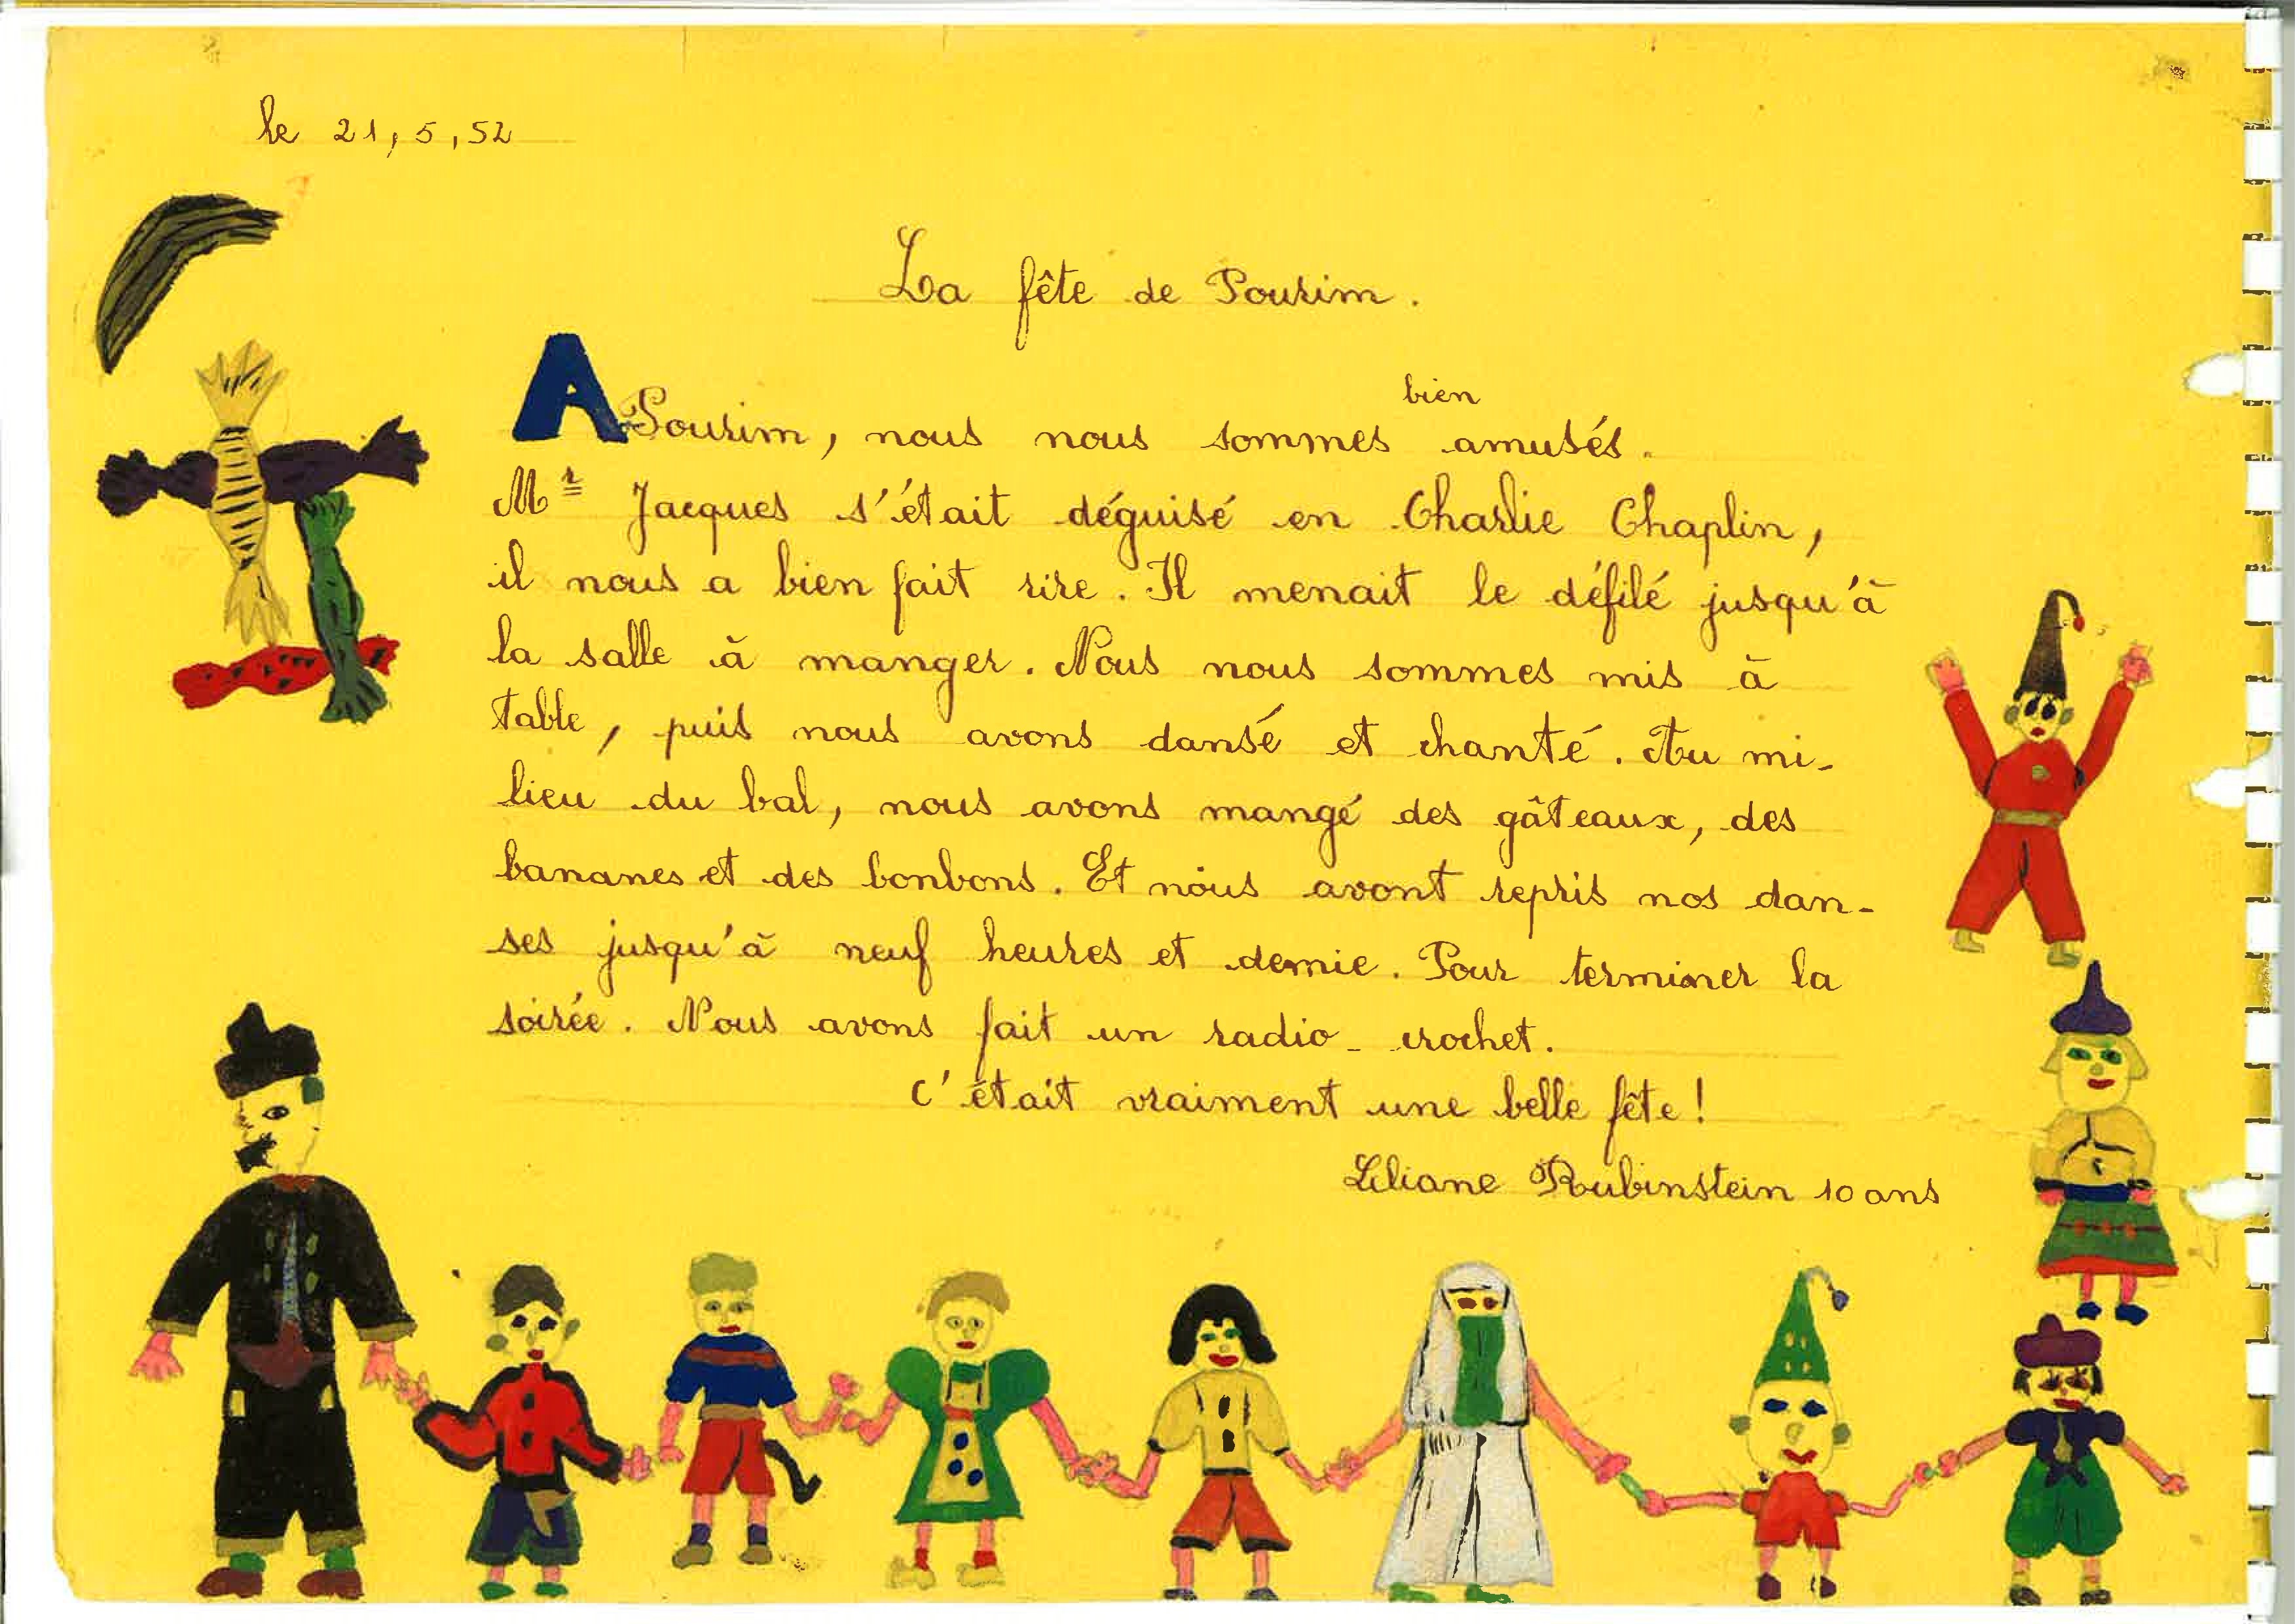 le 21,5,52
La fête de Pourim.
A Pourim, nous nous sommes bien amusés.
Mr Jacques s'était déguisé en Charlie Chaplin,
il nous a bien fait rire. Il menait le défilé jusqu'à
la salle à manger. Nous nous sommes mis à
table, puis nous avons dansé et chanté. Au mi-
lieu du bal, nous avons mangé des gâteaux, des
bananes et des bonbons. Et nous avont repris nos dan-
ses jusqu'à neuf heures et demie. Pour terminer la
soirée. Nous avons fait un radio-crochet.
c'était vraiment une belle fête!
Liliane Rubinstein 10 ans